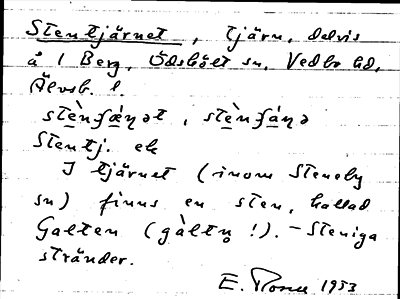 Stentjärnet, tjärn, delvis
å 1 Berg, Ödsbölt sn, Vedbo hd,
Älvsb. l.
stè̱nʃǽ̱ṇət, stè̱nʃá̱ṇə
Stentj. ek
I tjärnet (inom Steneby
sn) finns en sten, kallad
Galten (gàltn̥ !). – Steniga
stränder.
E. 1953